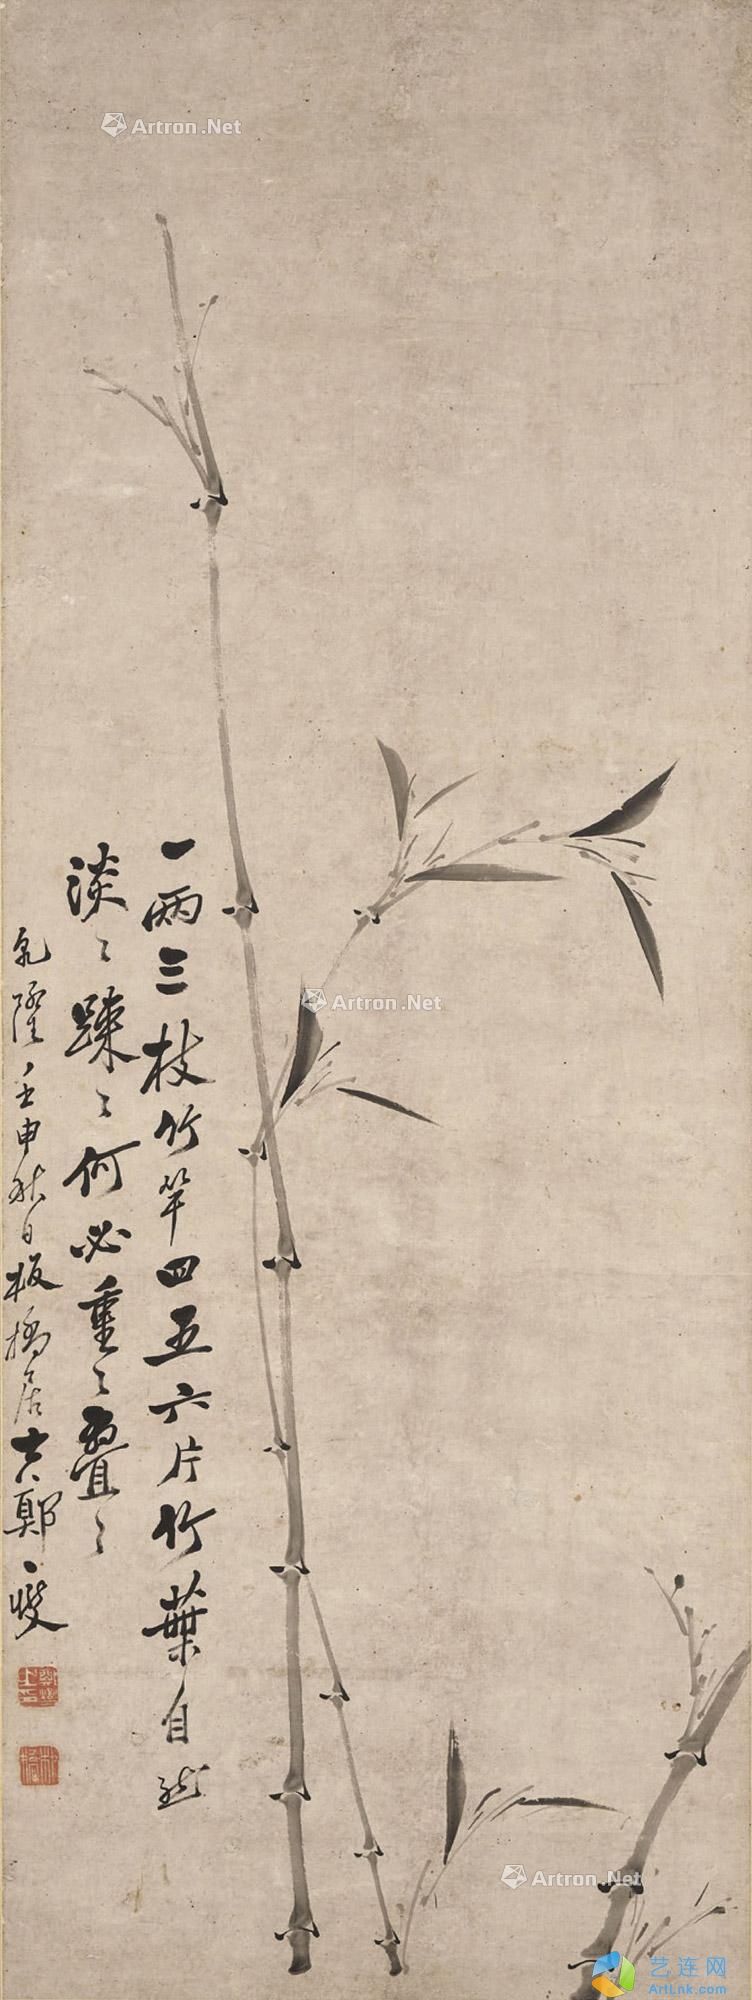 一兩三枝竹竿四五六片竹葉自然
淡〻踈〻何必重〻疊〻
乾隆壬申秋日板橋居士鄭燮
鄭燮之印
Artron.Net
Artron.Net
Artron.Net
艺连网
ArtLnk.com